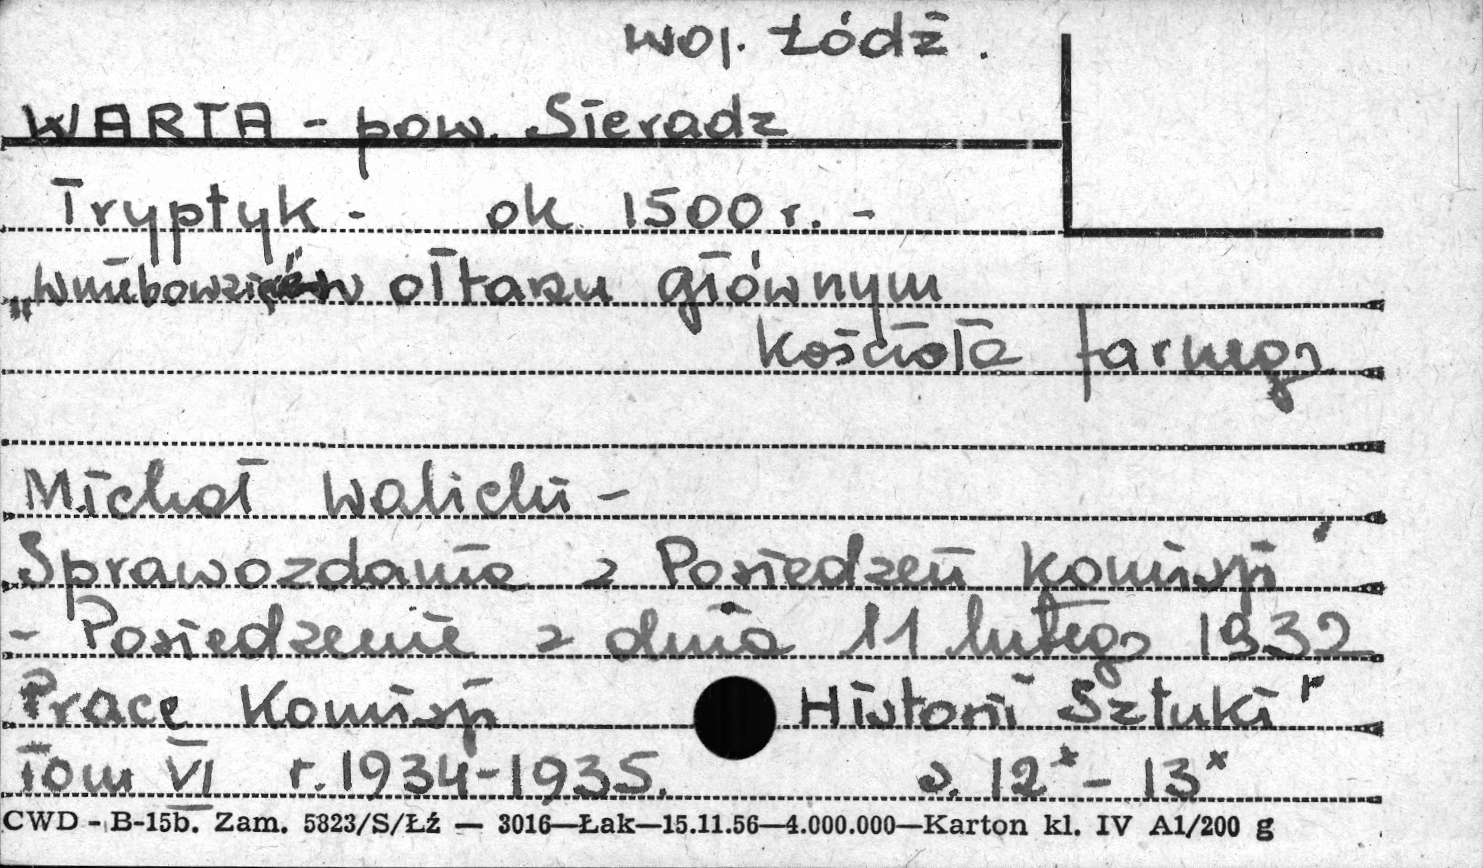 woj. Łódź.
WARTA - pow. Sieradz
Tryptyk - ok 1500 r. -
„Wniebowzięcie w ołtarzu głównym
Kościoła farnego
Michał Walicki -
Sprawozdania z Posiedzeń Komisji
- Posiedzenie z dnia 11 lutego 1932
Prace Komisji Historii Sztuki r
Tom VI r. 1934-1935. s. 12*- 13*
CWD - B-15b. Zam. 5823/S/Łź — 3016—Łak—15.11.56—4.000.000—Karton kl. IV A1/200 g